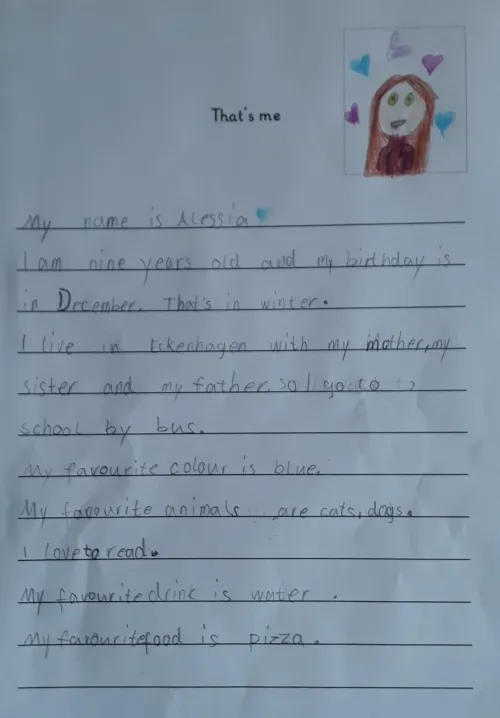 That's me
My name is Alessia
I am nine years old and my birthday is
in December. That's in winter.
I live in Eckenhagen with my mother, my
sister and my father. so I go to
school by bus.
My favourite colour is blue.
My favourite animals are cats, dogs.
I love to read.
My favourite drink is water .
My favourite food is pizza.